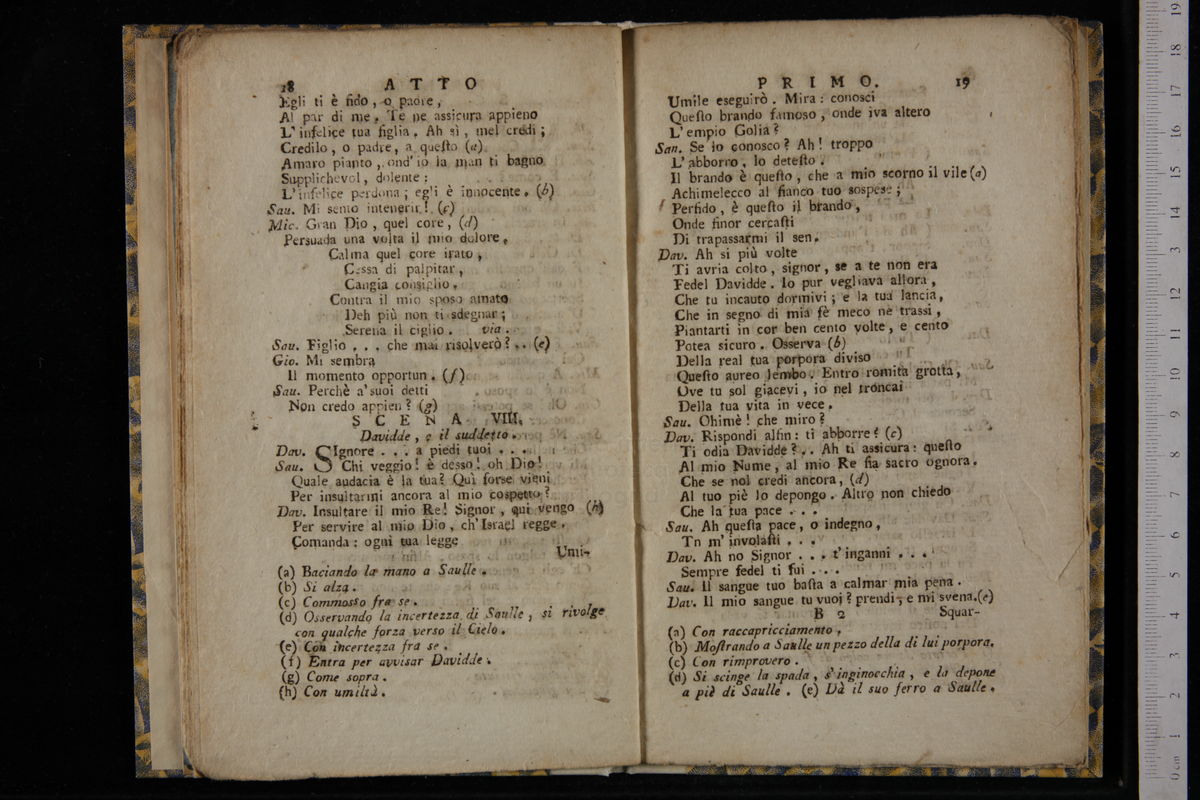 18 ATTO
Egli ti è fido, o padre,
Al par di me. Te ne assicura appieno
L'infelice tua figlia. Ah sì, mel credi;
Credilo, o padre, a queſto (a)
Amaro pianto, ond'io la man ti bagno
Supplichevol, dolente:
L'infelice perdona; egli è innocente. (b)
Sau. Mi sento intenerir! (c)
Mic. Gran Dio, quel core, (d)
Persuada una volta il mio dolore.
Calma quel core irato,
Cessa di palpitar,
Cangia consiglio.
Contra il mio sposo amato
Deh più non ti sdegnar;
Serena il ciglio. via.
Sau. Figlio . . . che mai risolverò? .. (e)
Gio. Mi sembra
Il momento opportun. (f)
Sau. Perchè a' suoi detti
Non credo appien? (g)
SCENA VIII.
Davidde, e il suddetto.
Dav. SIgnore . . . a piedi tuoi . . .
Sau. Chi veggio! è desso! oh Dio!
Quale audacia è la tua? Quì forse vieni
Per insultarmi ancora al mio cospetto?
Dav. Insultare il mio Re! Signor, qui vengo (h)
Per servire al mio Dio, ch'Israel regge.
Comanda: ogni tua legge
Umi-
(a) Baciando la mano a Saulle.
(b) Si alza.
(c) Commosso fra se.
(d) Osservando la incertezza di Saulle, si rivolge
con qualche forza verso il Cielo.
(e) Con incertezza fra se.
(f) Entra per avvisar Davidde.
(g) Come sopra.
(h) Con umiltà.
PRIMO. 19
Umile eseguirò. Mira: conosci
Queſto brando famoso, onde iva altero
L'empio Golia?
San. Se lo conosco? Ah! troppo
L'abborro, lo deteſto.
Il brando è queſto, che a mio scorno il vile (a)
Achimelecco al fianco tuo sospese;
Perfido, è queſto il brando,
Onde finor cercaſti
Di trapassarmi il sen.
Dav. Ah si più volte
Ti avria colto, signor, se a te non era
Fedel Davidde. Io pur vegliava allora,
Che tu incauto dormivi; e la tua lancia,
Che in segno di mia fè meco ne trassi,
Piantarti in cor ben cento volte, e cento
Potea sicuro. Osserva (b)
Della real tua porpora diviso
Queſto aureo lembo. Entro romita grotta,
Ove tu sol giacevi, io nel troncai
Della tua vita in vece.
Sau. Ohimè! che miro?
Dav. Rispondi alfin: ti abborre? (c)
Ti odia Davidde? .. Ah ti assicura: queſto
Al mio Nume, al mio Re ſia sacro ognora.
Che se nol credi ancora, (d)
Al tuo piè lo depongo. Altro non chiedo
Che la tua pace . . .
Sau. Ah queſta pace, o indegno,
Tn m'involaſti . . .
Dav. Ah no Signor . . . t'inganni . . .
Sempre fedel ti fui . . .
Sau. Il sangue tuo baſta a calmar mia pena.
Dav. Il mio sangue tu vuoi? prendi, e mi svena. (e)
B 2 Squar-
(a) Con raccapricciamento.
(b) Moſtrando a Saulle un pezzo della di lui porpora.
(c) Con rimprovero.
(d) Si scinge la spada, s'inginocchia, e la depone
a piè di Saulle. (e) Dà il suo ferro a Saulle.
0 cm 1 2 3 4 5 6 7 8 9 10 11 12 13 14 15 16 17 18 19